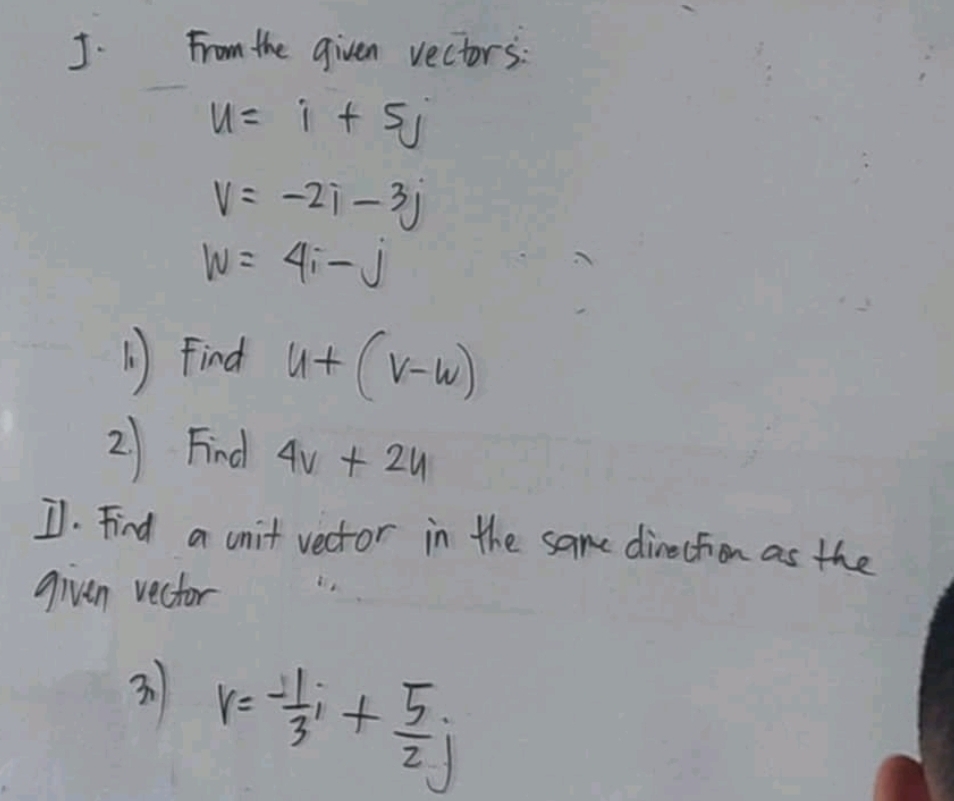 I. From the given vectors:
u = i + 5j
v = -2i - 3j
w = 4i - j
1.) Find u + (v-w)
2.) Find 4v + 2u
II. Find a unit vector in the same direction as the
given vector
3.) v = -1/3 i + 5/2 j